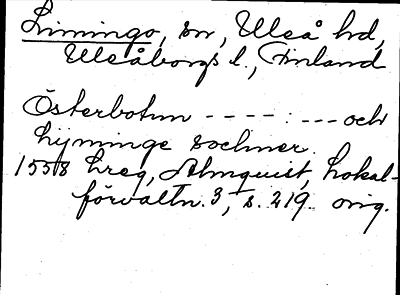 Limingo, sn, Uleå hd,
Uleåborgs l., Finland
Österbotnn - - - - : - - - och
Lijminge sochner.
1558 Lreg, Almquist, Lokal-
förvaltn. 3, s. 219. orig.